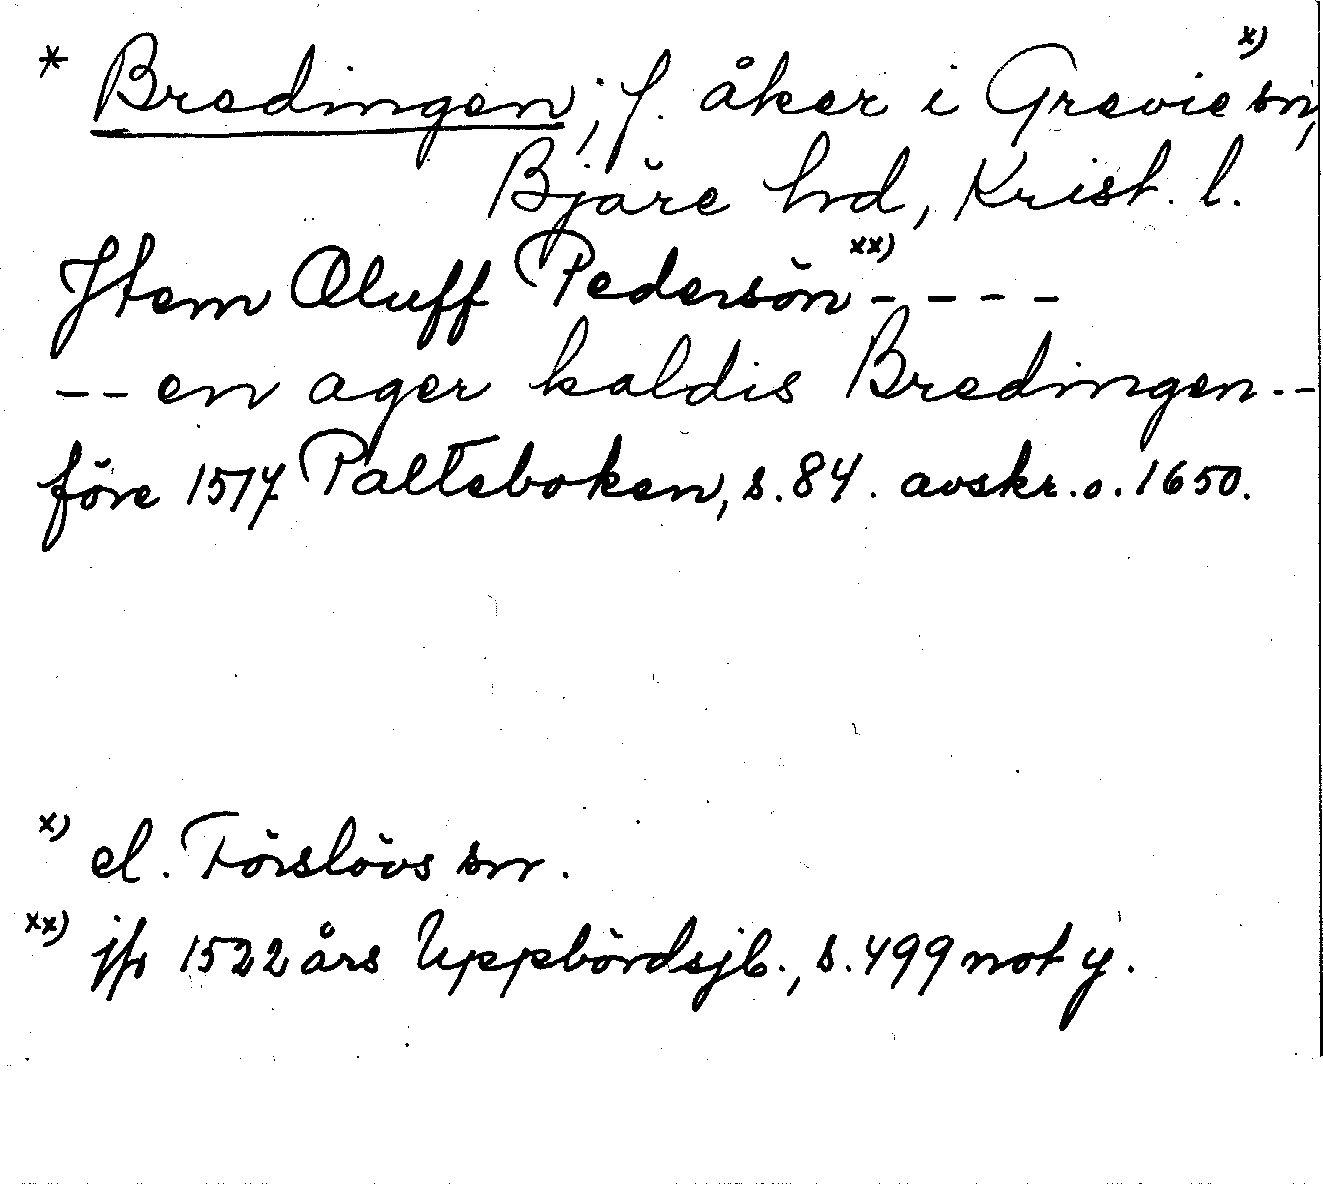 * Bredingen, f. åker i Grevie x) sn,
Bjäre hd, Krist. l.
Item Oluff Pedersön xx) - - - -
-- en ager kaldis Bredingen --
före 1517 Palteboken, s. 84. avskr. o. 1650.
x) el. Förslövs sn.
xx) jfr 1522 års Uppbördsjb., s. 499 not y.